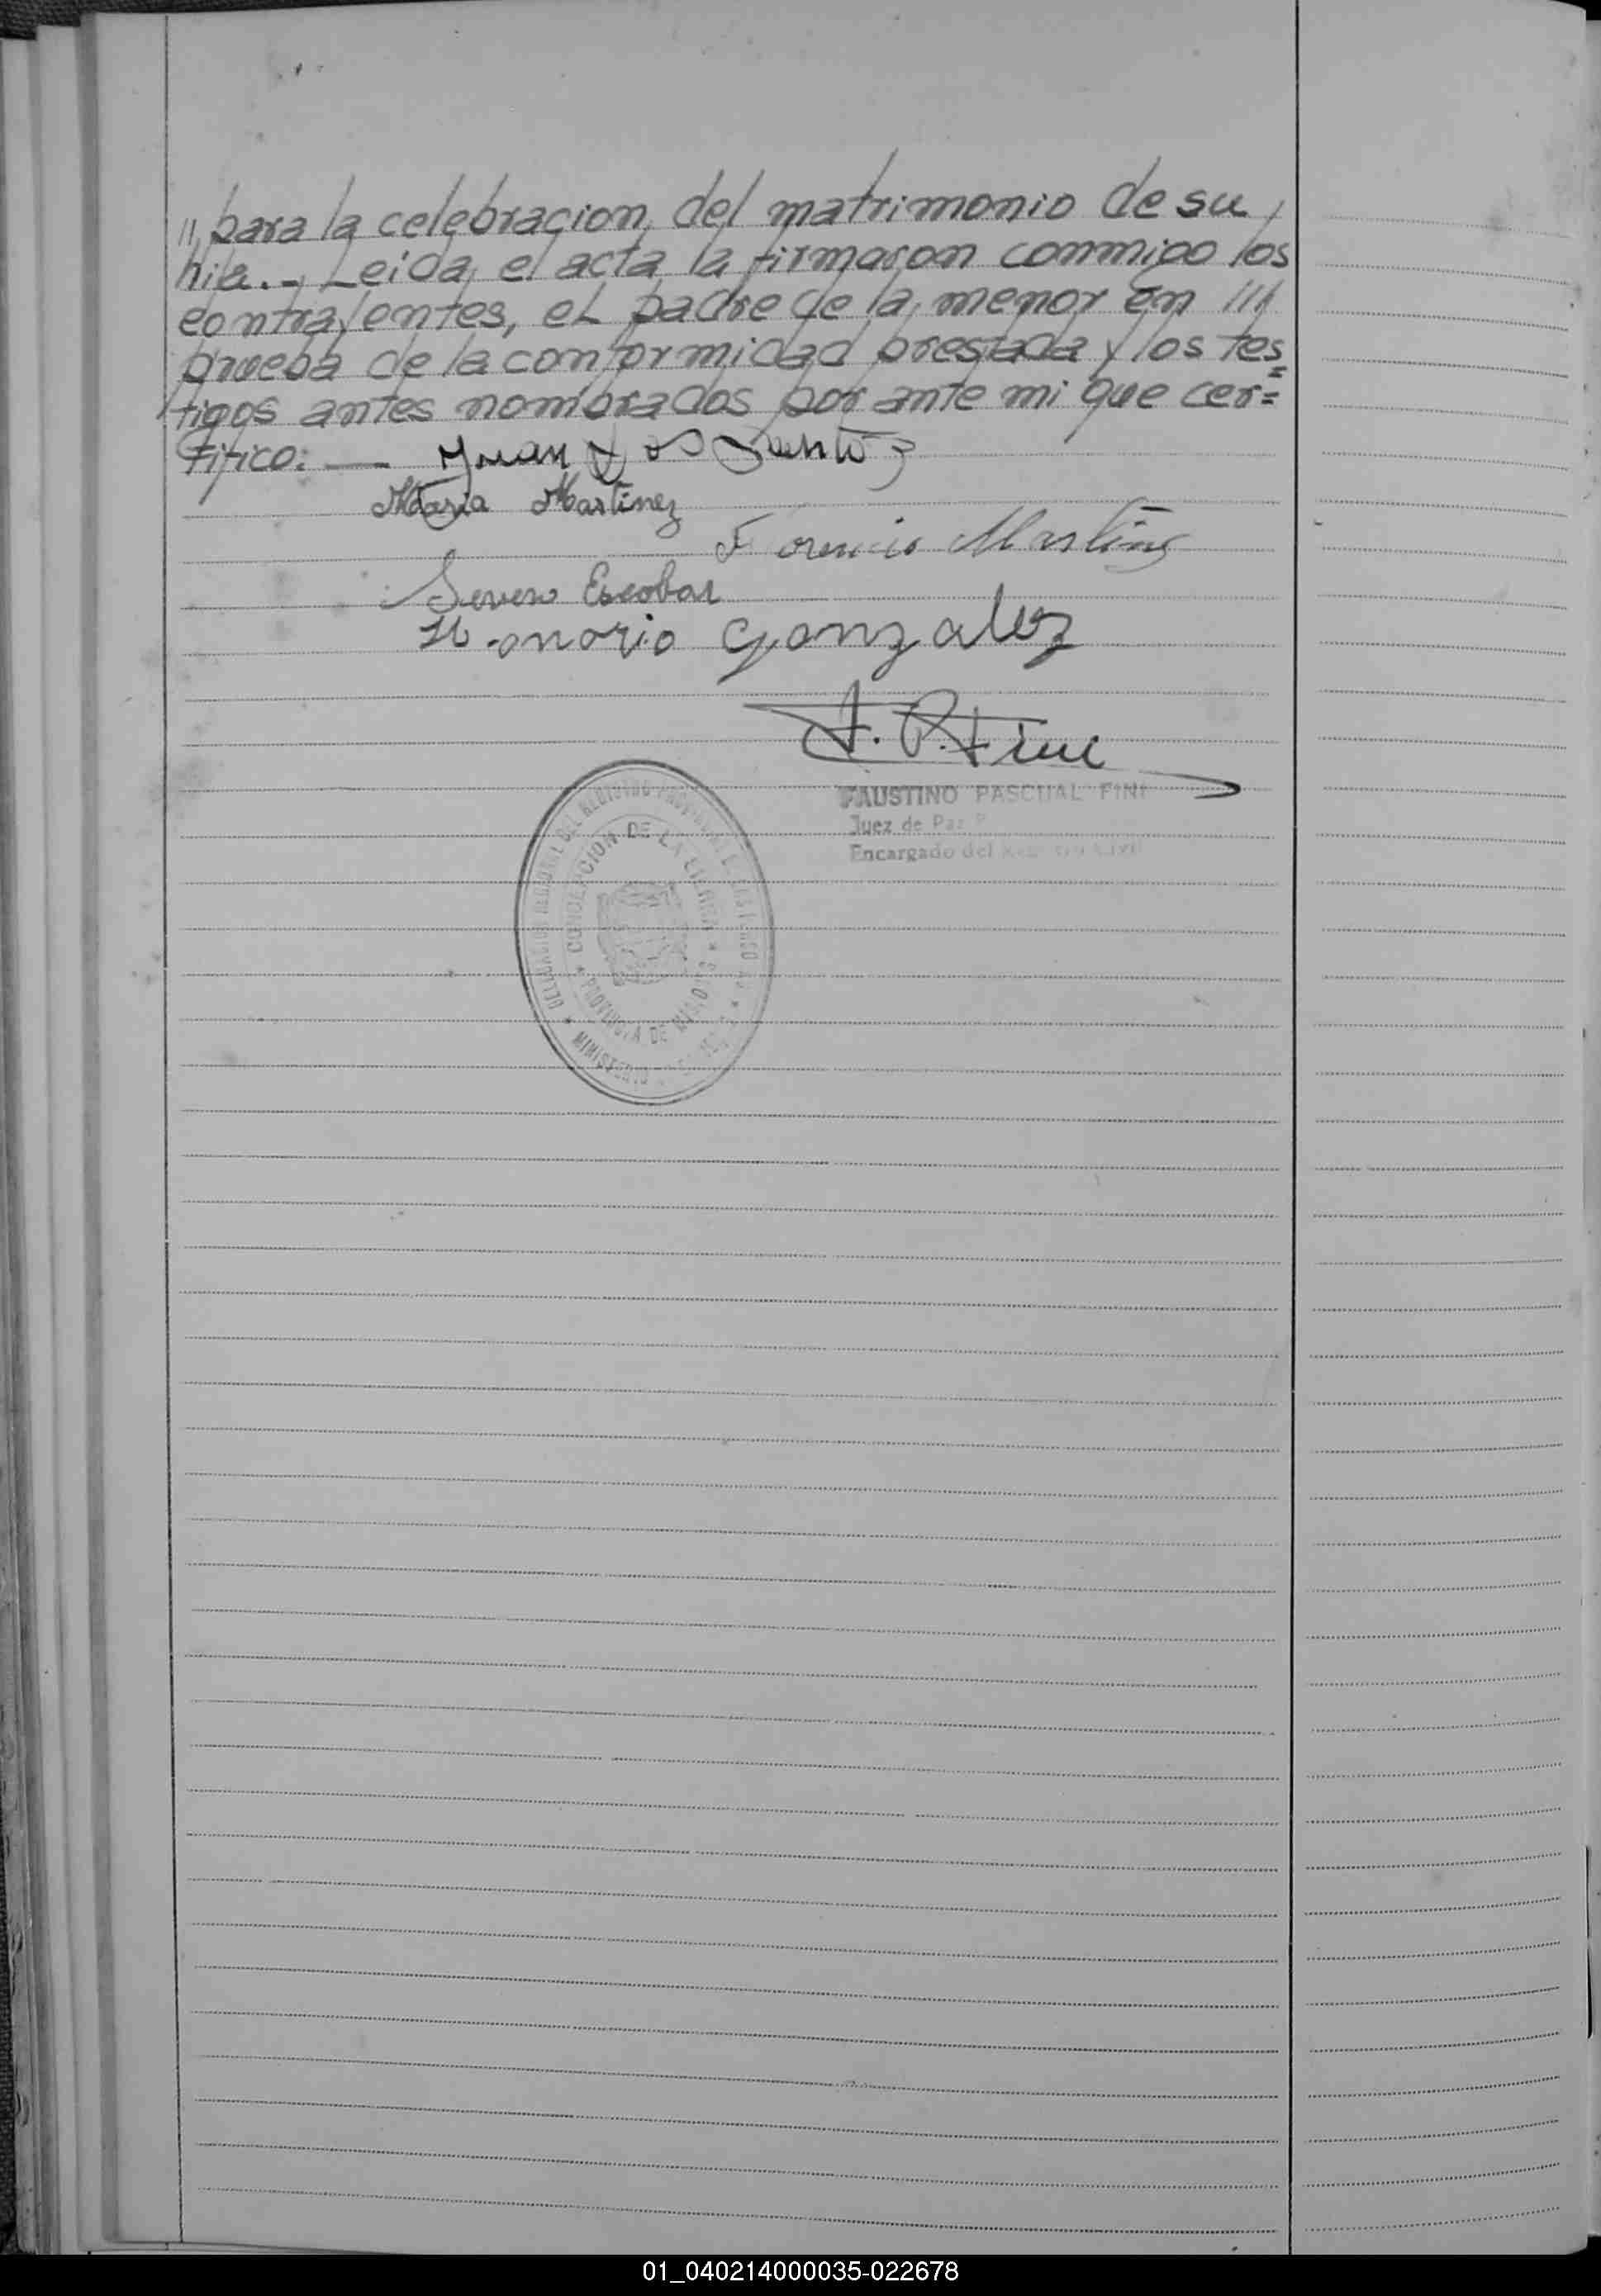 " para la celebracion del matrimonio de su
hija.- Leida el acta la firmaron conmigo los
contrayentes, el padre de la menor en ///
prueba de la conformidad prestada y los tes=
tigos antes nombrados por ante mi que cer=
tifico: — Juan Dos Santos
Maria Martinez
Martinez
Severo Escobar
Honorio Gonzalez
F. P. Fini
FAUSTINO PASCUAL FINI
Juez de Paz
Encargado del Registro Civil
CONCEPCION DE LA SIERRA
PROVINCIA DE MISIONES
MINISTERIO
01_040214000035-022678